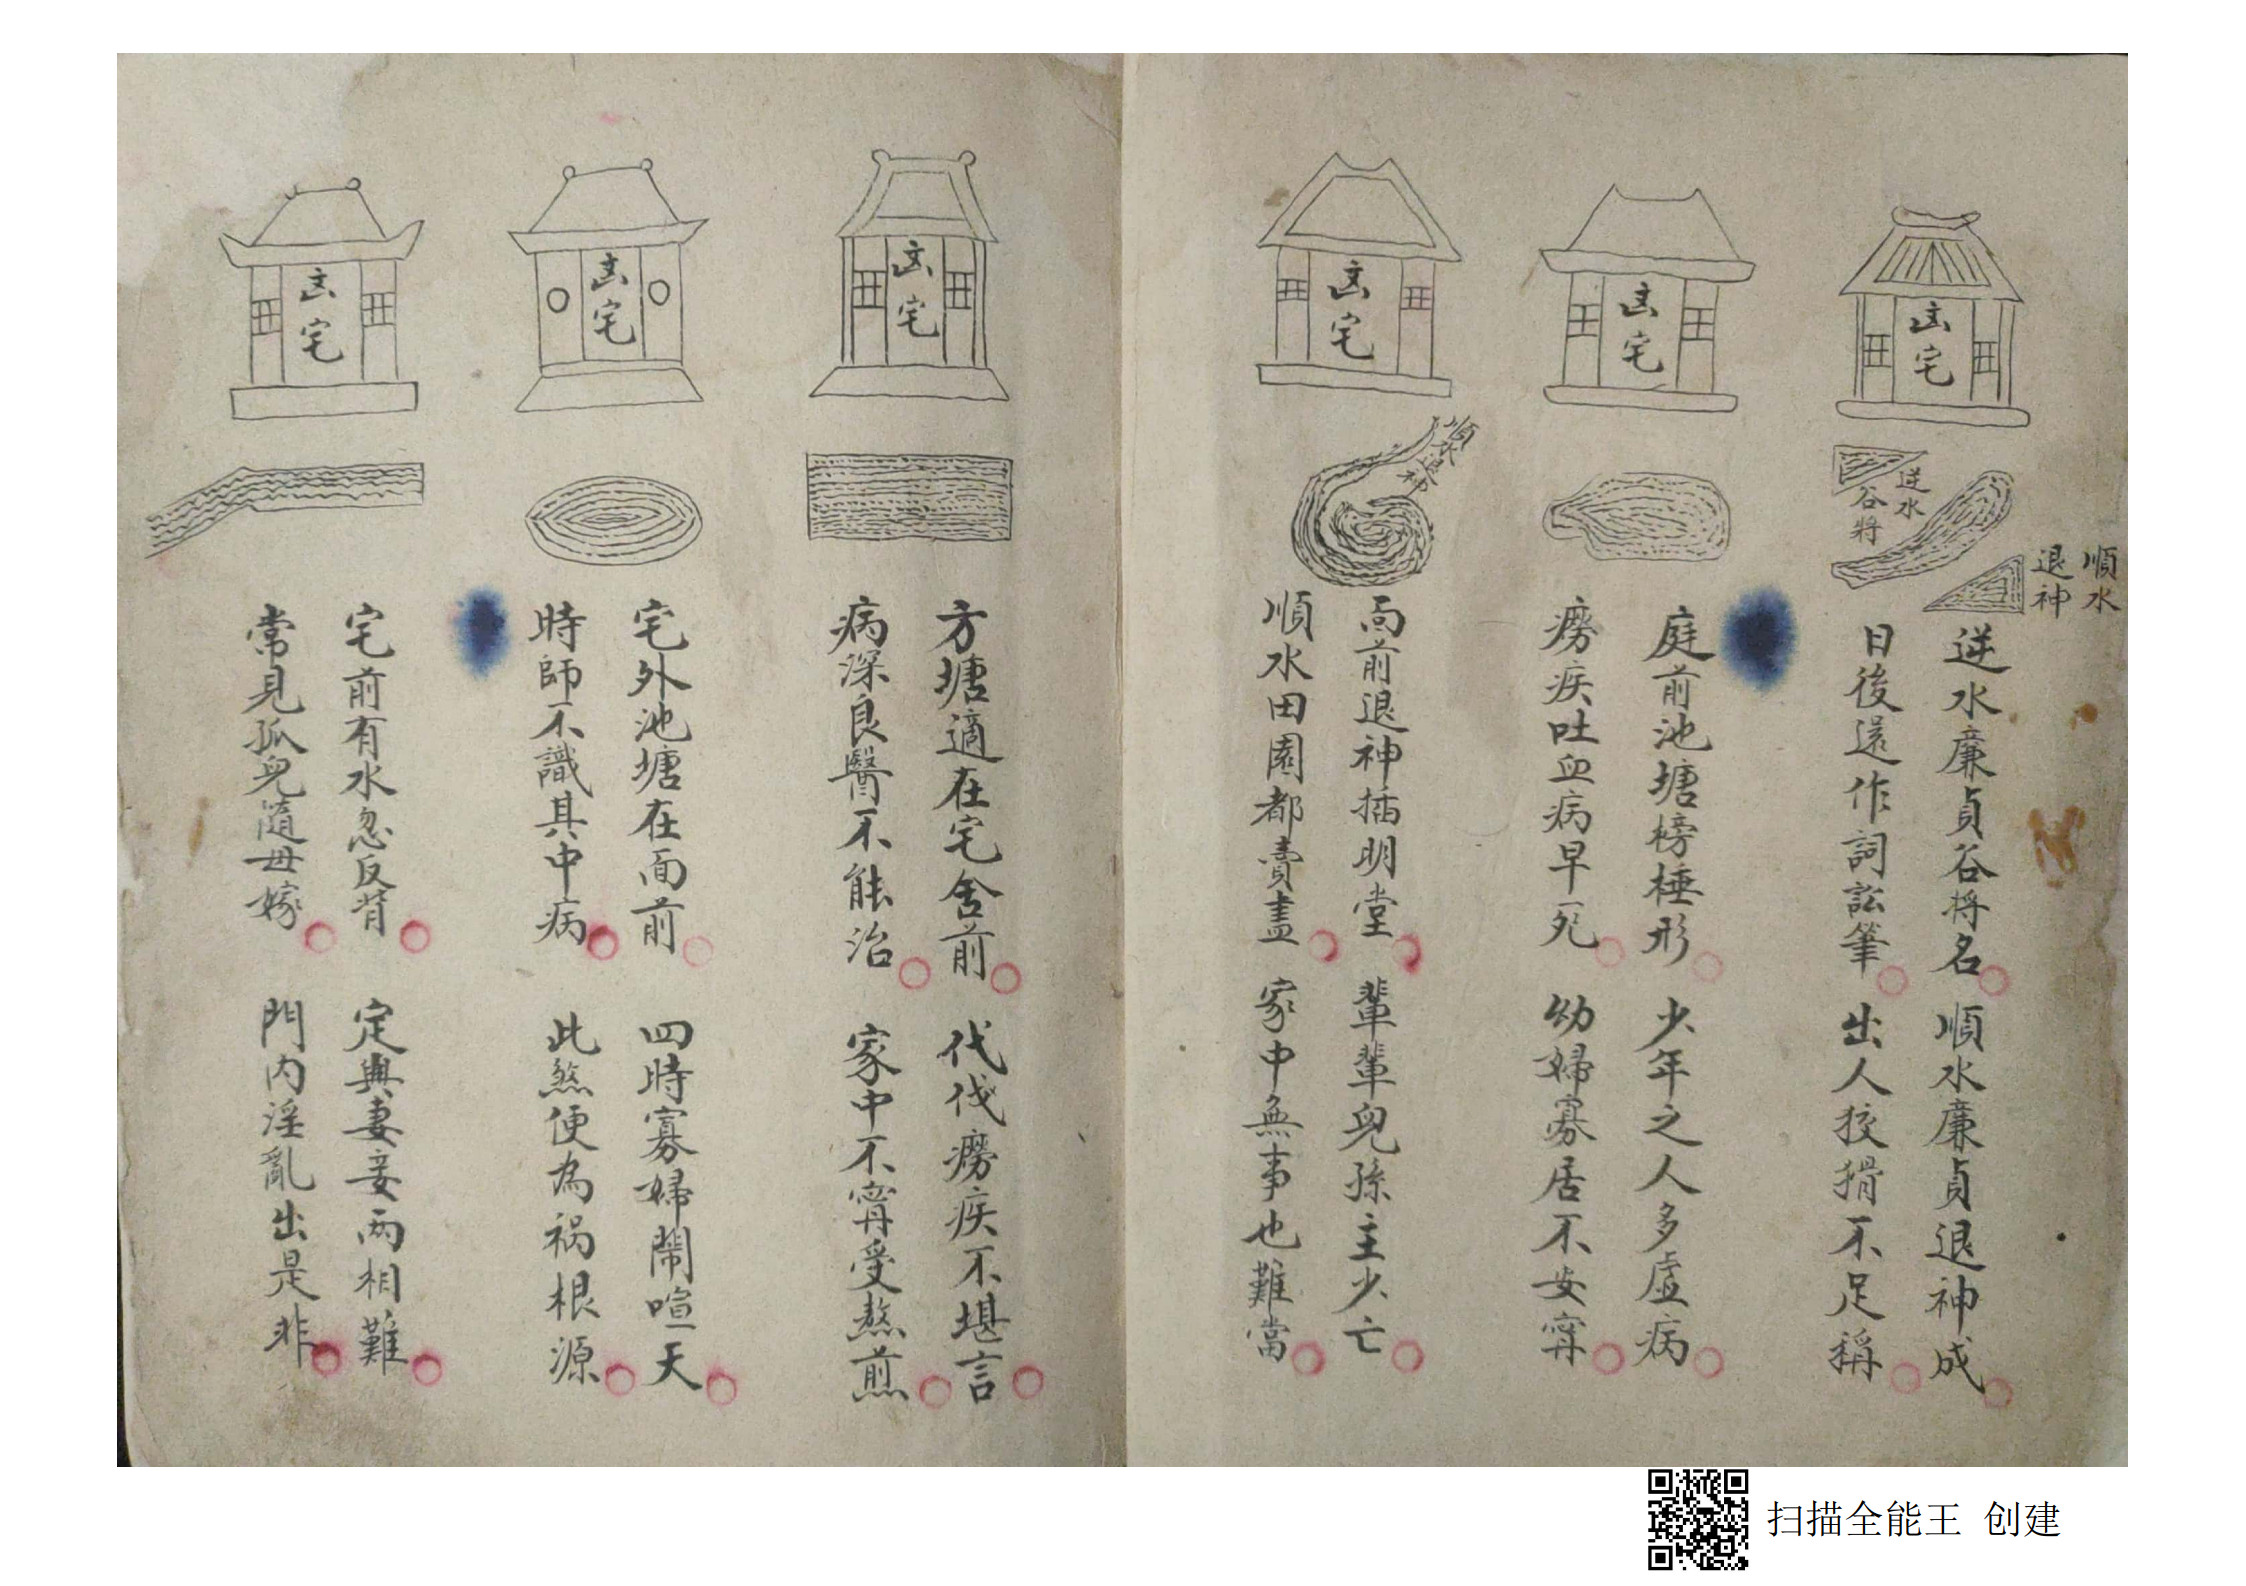 凶宅
逆水
谷將
順水
退神
逆水廉貞谷将名
順水廉貞退神成
日後還作詞訟筆
出人狡猾不足稱
凶宅
庭前池塘榜棰形
少年之人多虛病
癆疾吐血病早死
幼婦寡居不安寧
凶宅
順水
退神
面前退神插明堂
輩輩兒孫主少亡
順水田園都賣盡
家中無事也難當
凶宅
方塘適在宅舍前
代代癆疾不堪言
病深良醫不能治
家中不寧受熬煎
凶宅
宅外池塘在面前
四時寡婦鬧喧天
時師不識其中病
此煞便為祸根源
凶宅
宅前有水忽反背
定與妻妾兩相難
常見孤兒隨母嫁
門内淫亂出是非
扫描全能王 创建